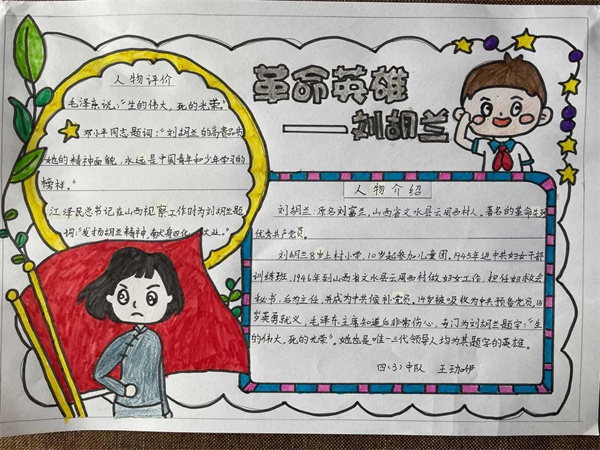 革命英雄
——刘胡兰
人物评价
毛泽东说:“生的伟大,死的光荣。”
邓小平同志题词:“刘胡兰的高贵品质
她的精神面貌,永远是中国青年和少年学习的
榜样。”
江泽民总书记在山西视察工作时为刘胡兰题
词:“发扬胡兰精神,献身四化
人物介绍
刘胡兰:原名刘富兰,山西省文水县云周西村人,著名的革命
优秀共产党员。
刘胡兰8岁上村小学,10岁起参加儿童团。1945年进中共妇女干部
训练班,1946年到山西省文水县云周西村做妇女工作,担任妇救会
秘书,后为主任,并成为中共候补党员。14岁被吸收为中共预备党员,15
岁英勇就义,毛泽东主席知道后非常伤心,专门为刘胡兰题字:“生
的伟大,死的光荣”。她也是唯一三代领导人均为其题字的英雄。
四(3)中队 王